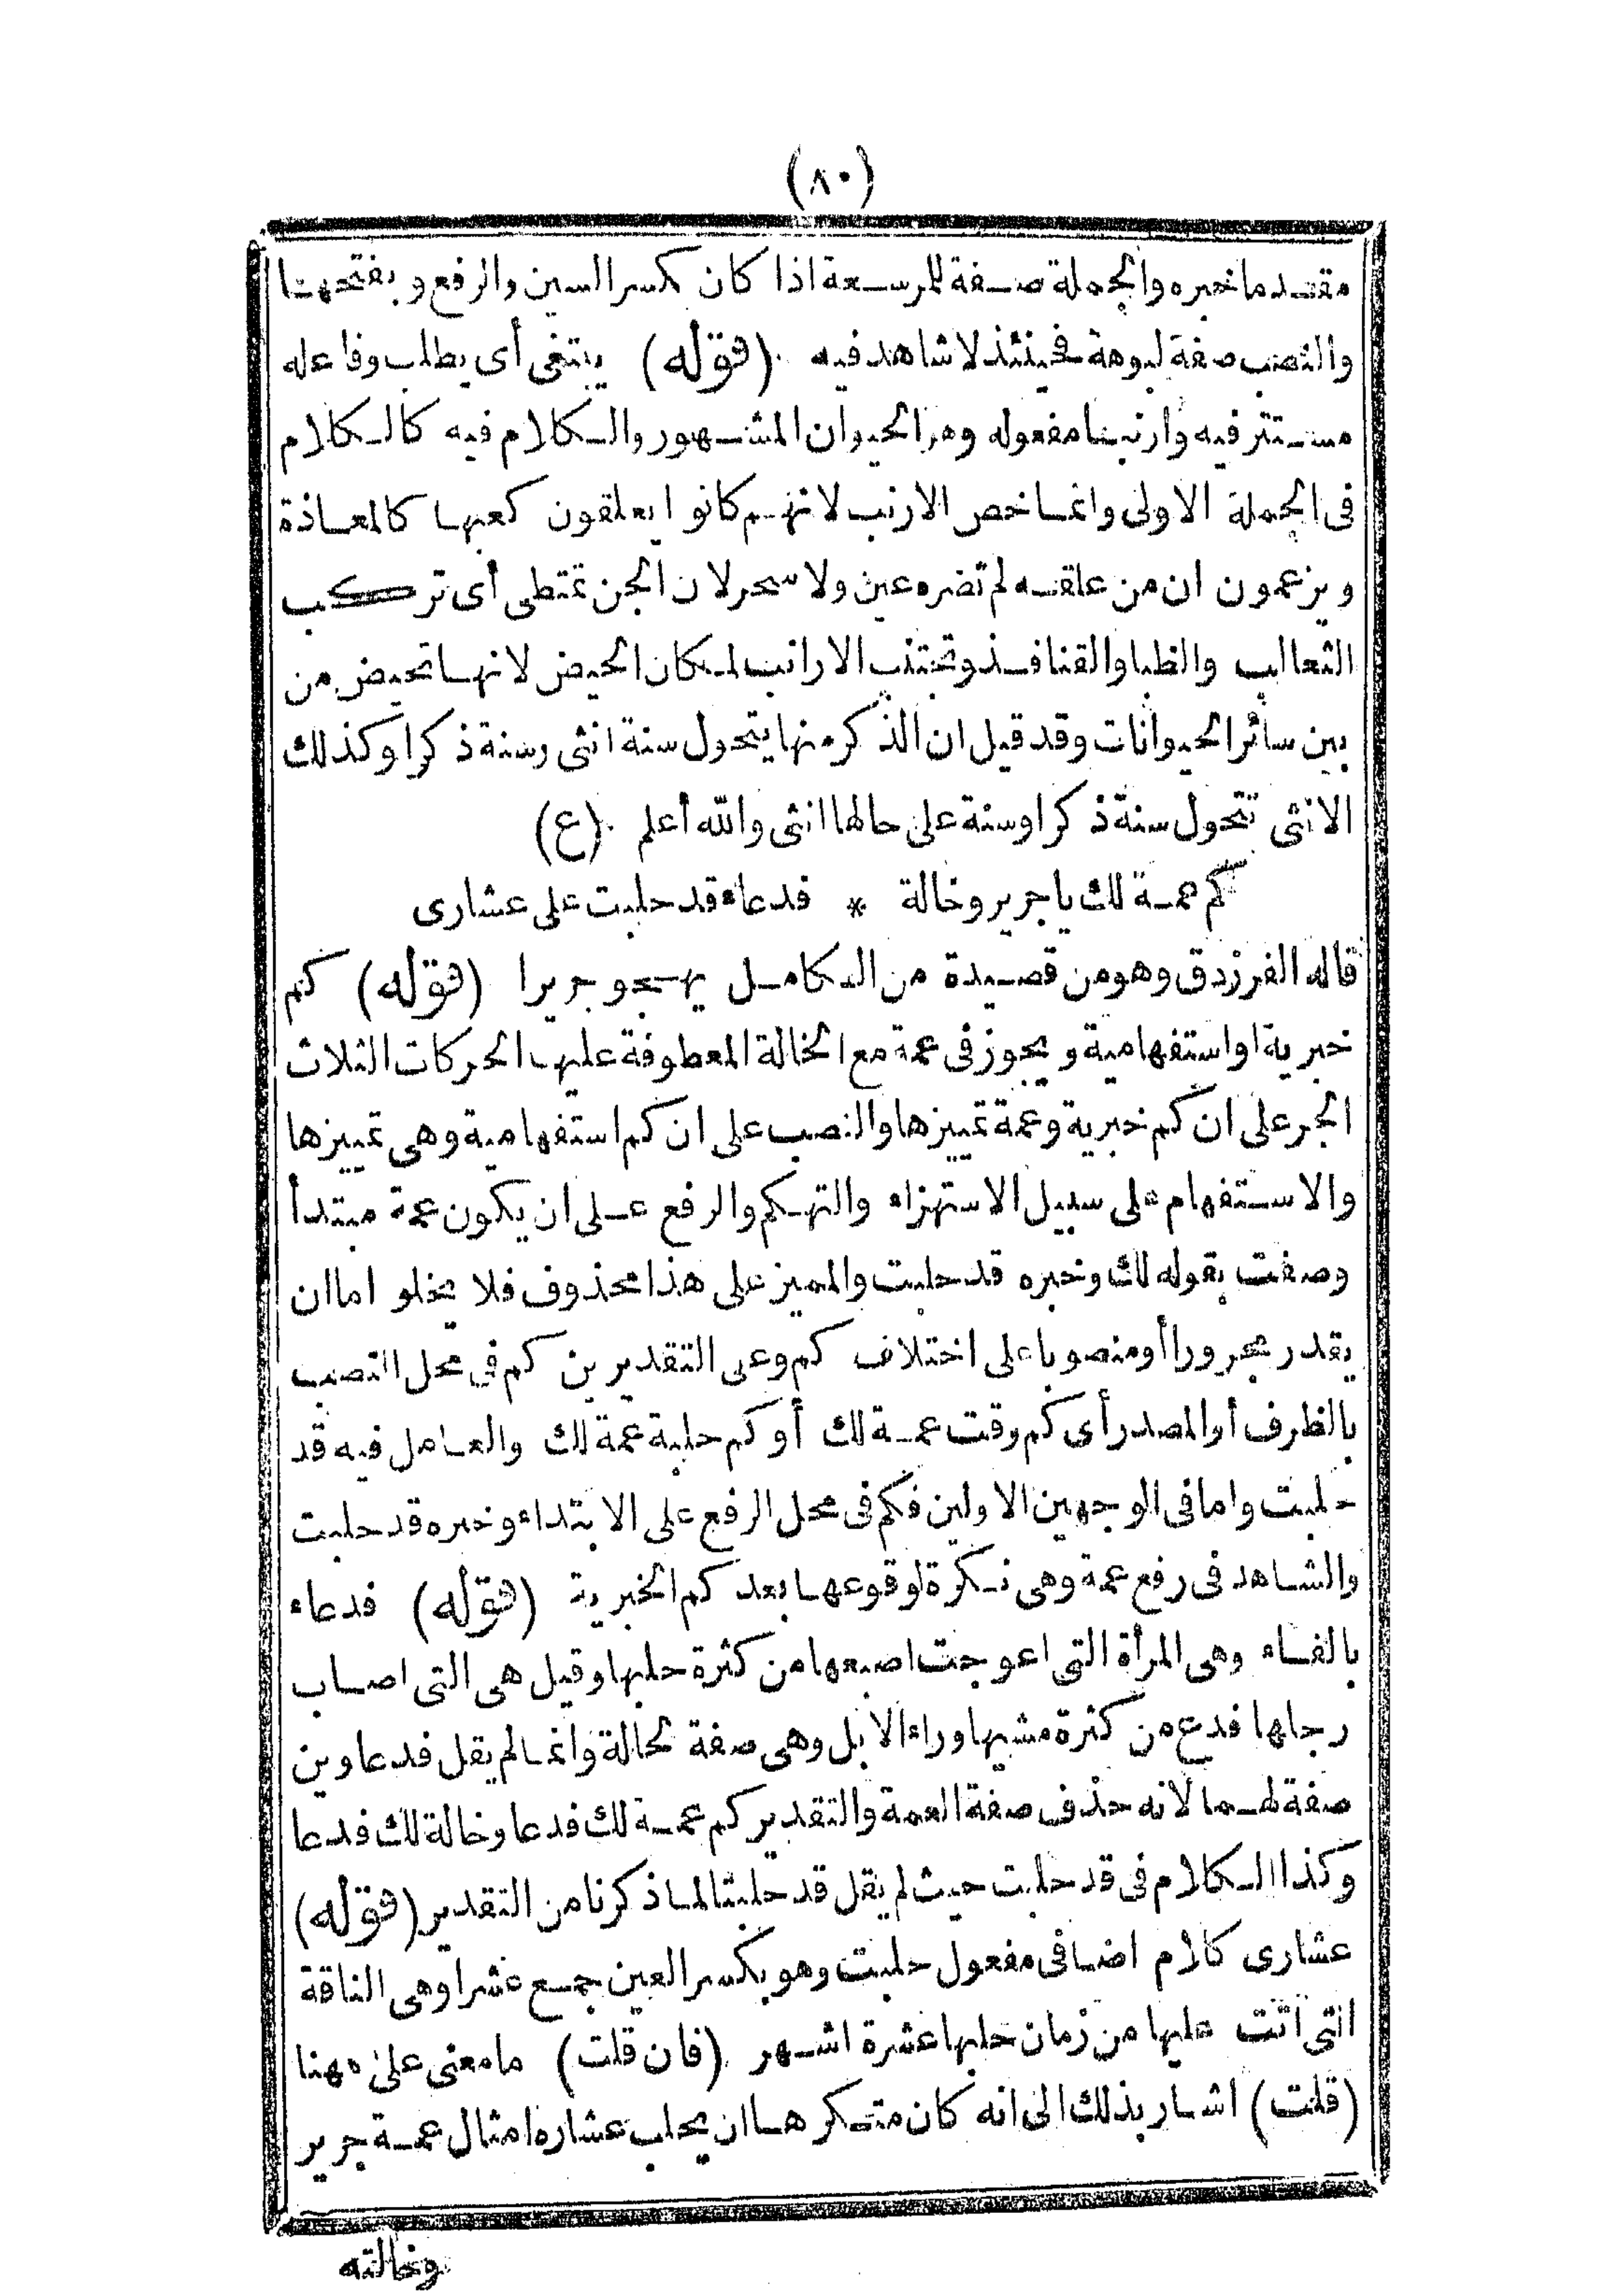 (٨٠)
مقدما خبره والجملة صفة للمرسعة اذا كان بكسر السين والرفع و بفتحهتا
والنصب صفة لبوهة فحينئذ لا شاهد فيه (قوله) يبتغى أى يطلب وفاعله
مستتر فيه وارنبا مفعوله وهو الحيوان المشهور والكلام فيه كالكلام
فى الجملة الاولى وانما خص الارنب لانهم كانوا يعلقون كعبها كالمعاذة
ويزعمون ان من علقه لم تضره عين ولا سحر لان الجن تمتطى أى تركب
الثعالب والظبا والقنافذ وتجتنب الارانب لمكان الحيض لانها تحيض من
بين سائر الحيوانات وقد قيل ان الذكر منها يتحول سنة انثى وسنة ذكرا وكذلك
الانثى تتحول سنة ذكرا وسنة على حالها انثى والله أعلم (ع)
كم عمة لك يا جرير وخالة * فدعاء قد حلبت على عشارى
قاله الفرزدق وهو من قصيدة من الكامل يهجو جريرا (قوله) كم
خبرية او استفهامية و يجوز فى عمة مع الخالة المعطوفة عليها الحركات الثلاث
الجر على ان كم خبرية وعمة تمييزها والنصب على ان كم استفهامية وهى تمييزها
والاستفهام على سبيل الاستهزاء والتهكم والرفع على ان يكون عمة مبتدأ
وصفت بقوله لك وخبره قد حلبت والمميز على هذا محذوف فلا يخلو اما ان
يقدر مجرورا أو منصوبا على اختلاف كم وعلى التقديرين كم فى محل النصب
بالظرف أو المصدر أى كم وقت عمة لك أو كم حلبة عمة لك والعامل فيه قد
حلبت واما فى الوجهين الاولين فكم فى محل الرفع على الابتداء وخبره قد حلبت
والشاهد فى رفع عمة وهى نكرة لوقوعها بعد كم الخبرية (قوله) فدعاء
بالفاء وهى المرأة التى اعوجت اصبعها من كثرة حلبها وقيل هى التى اصاب
رجلها فدع من كثرة مشيها وراء الابل وهى صفة لخالة وانما لم يقل فدعاوين
صفة لهما لانه حذف صفة العمة والتقدير كم عمة لك فدعا وخالة لك فدعا
وكذا الكلام فى قد حلبت حيث لم يقل قد حلبتا لما ذكرنا من التقدير (قوله)
عشارى كلام اضافى مفعول حلبت وهو بكسر العين جمع عشرا وهى الناقة
التى اتت عليها من زمان حلبها عشرة اشهر (فان قلت) ما معنى على ههنا
(قلت) اشار بذلك الى انه كان متكرها ان يحلب عشاره امثال عمة جرير
وخالته